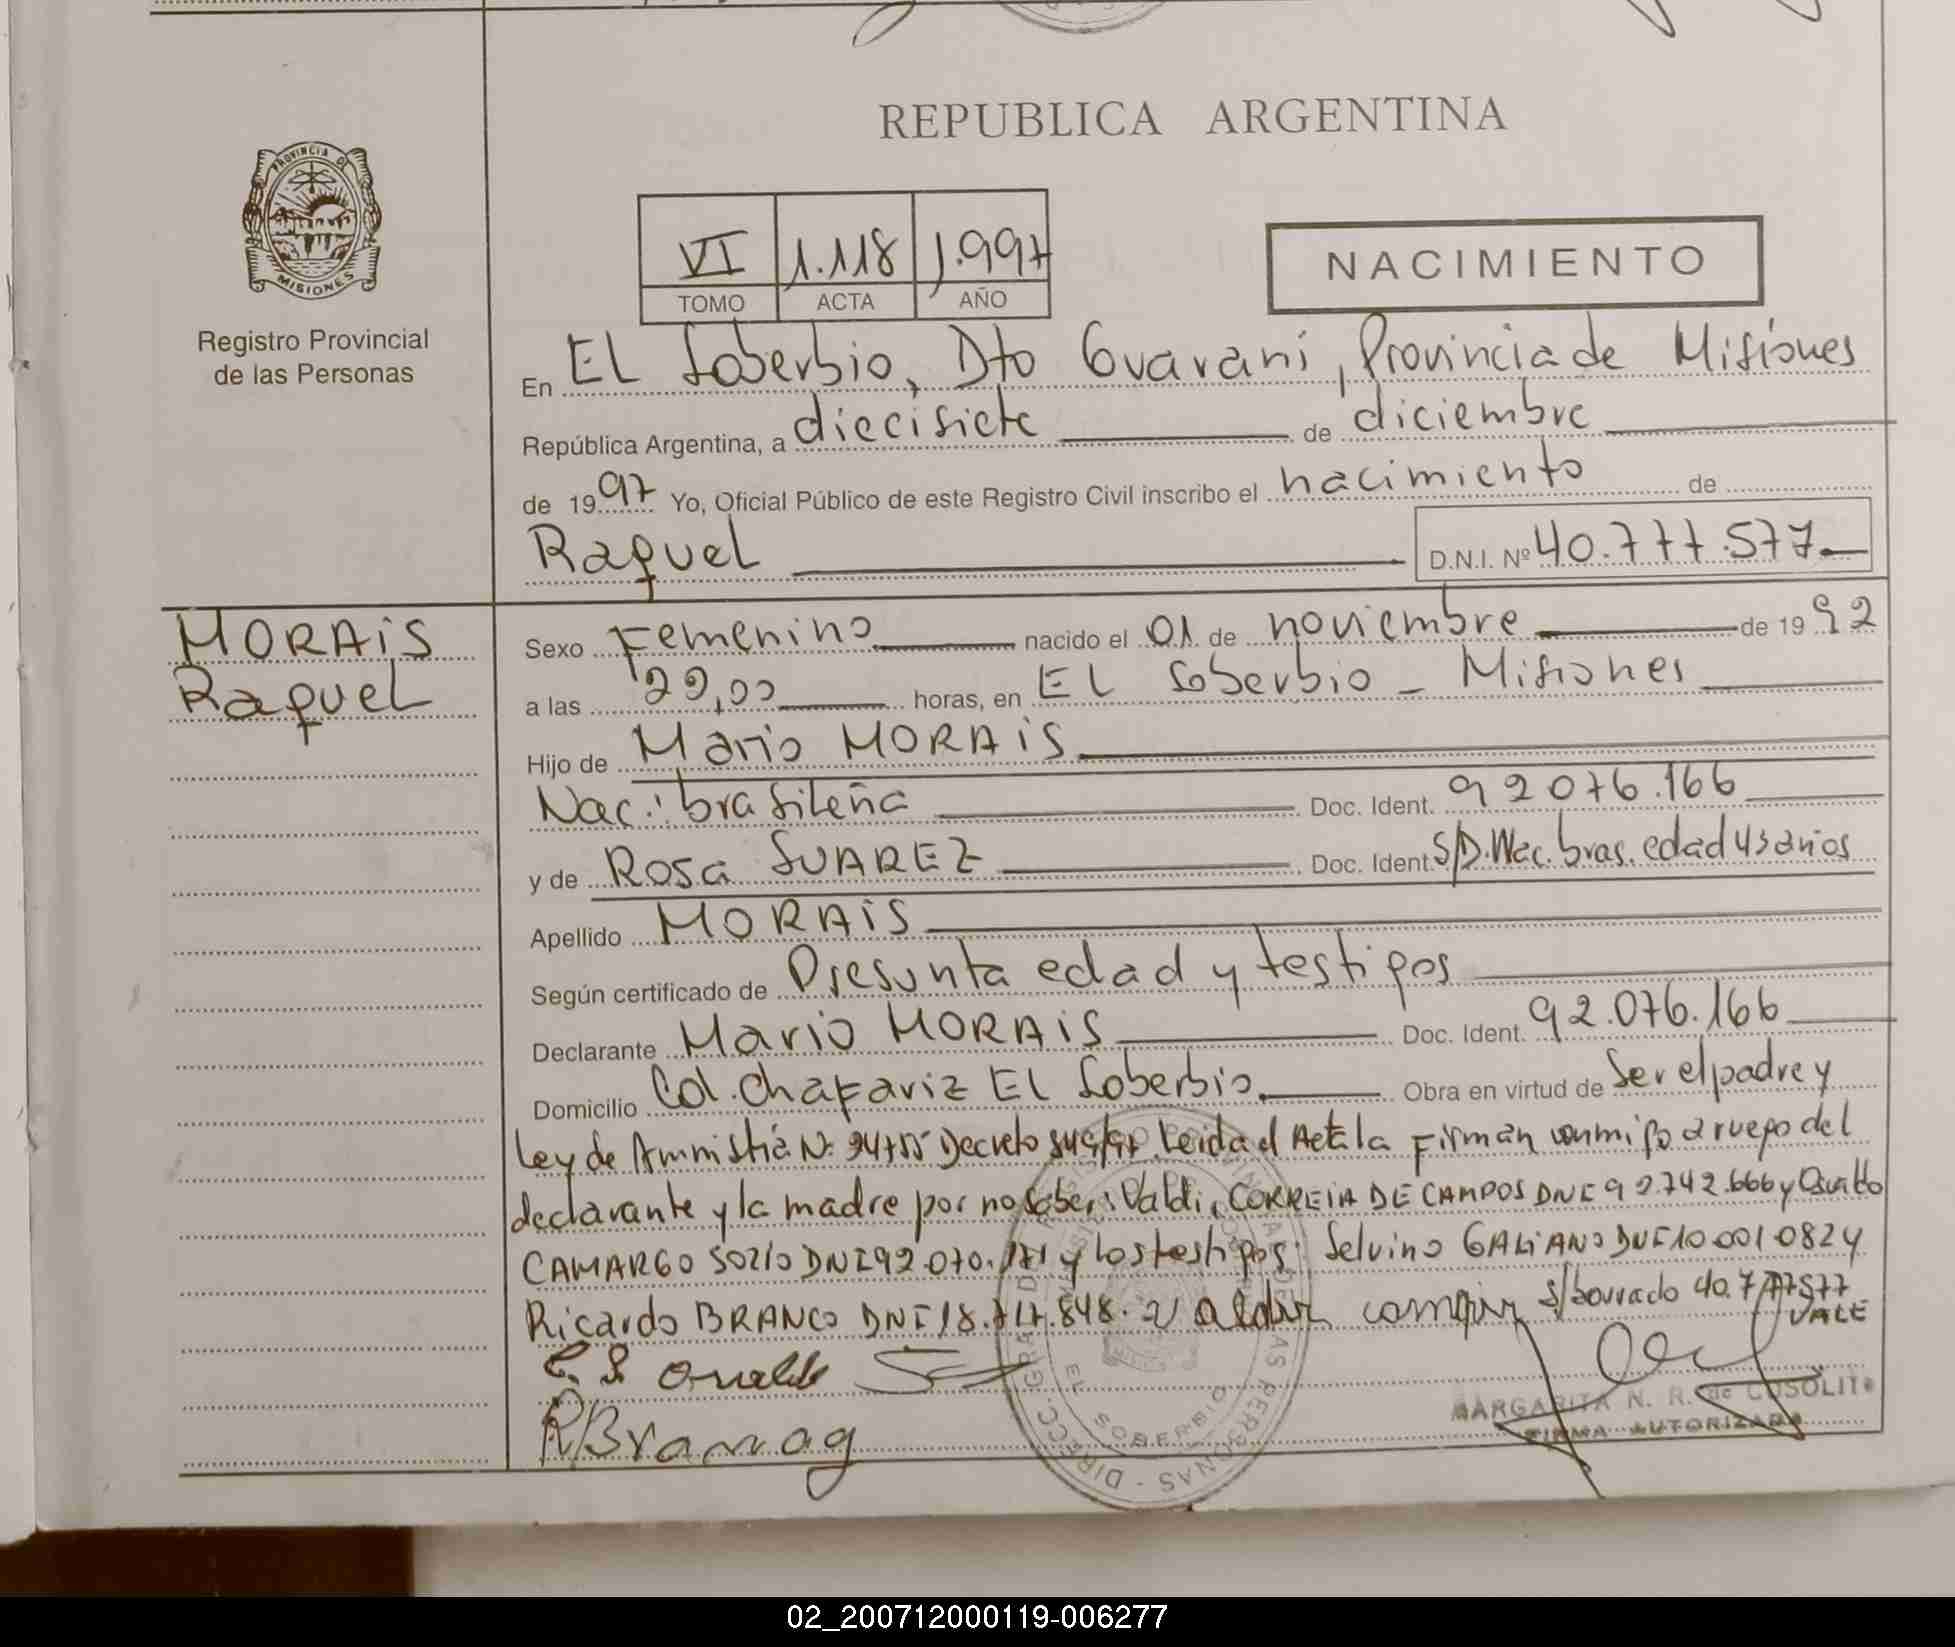 REPUBLICA ARGENTINA
PROVINCIA DE
MISIONES
Registro Provincial
de las Personas
VI 1.118 1.997
TOMO ACTA AÑO
NACIMIENTO
En EL Soberbio, Dto Guaraní, Provincia de Misiones
República Argentina, a diecisiete de diciembre
de 1997 Yo, Oficial Público de este Registro Civil inscribo el nacimiento de
Raquel D.N.I. Nº 40.777.577
MORAiS
Raquel
Sexo Femenino nacido el 01 de noviembre de 1992
a las 22,00 horas, en EL Soberbio - Misiones
Hijo de Mario MORAiS
Nac: brasileña Doc. Ident. 92076.166
y de Rosa SUAREZ Doc. Ident. S/D. Nac. bras. edad 43 años
Apellido MORAiS
Según certificado de Presunta edad y testigos
Declarante Mario MORAiS Doc. Ident. 92.076.166
Domicilio Col. Chafariz EL Soberbio Obra en virtud de Ser el padre y
Ley de Amnistiá N: 24755 Decreto 849/97. Leida el Acta la Firman conmigo a ruego del
declarante y la madre por no saber: Valdir CORREIA DE CAMPOS DNI 92.742.666 y Osvaldo
CAMARGO DNI 92.070. y los testigos: Selvino GALIANO DNI 10 001 082 y
Ricardo BRANCO DNI 18.717.848. s/borrado 40.777577
VALE
MARGARITA N. R. de COSOLITO
FIRMA AUTORIZADA
EL SOBERBIO
02_200712000119-006277